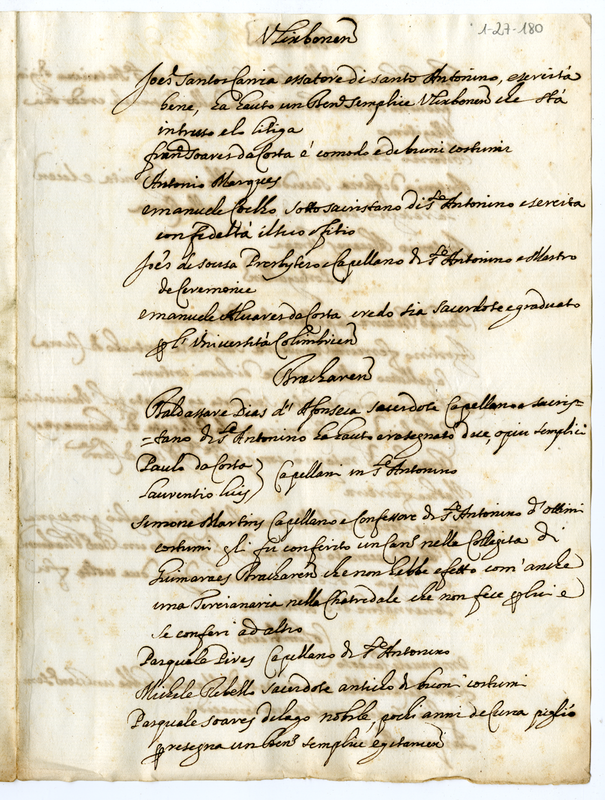 Vlixbonen
1-27-180
Joes Santos Carria essatore di santo Antonino, esercita
bene, ha hauto un Ben. semplice Vlixbonen che stà
intruso e lo litiga
fran. Soares da Costa è comodo e de buoni costumi
Antonio Marques
emanuele Coelho sotto sacristano di Sto Antonino esercita
con fideltà il suo ofitio
Joes de sousa Presbytero e Capellano di Sto Antonino e Mastro
de Ceremonie
emanuele Aluares da Costa credo sia sacerdote e graduato
Università Colimbrien
Bracharen
Baldassare Dias d' Afonseca sacerdote Capellano e sacris=
=tano di Sto Antonino ha hauto e rasegnato due, o piu semplici
Paulo da Costa
Laurentio luis
Capellani in Sto Antonino
Simone Martins Capellano e Confessore di Sto Antonino d'ottimi
costumi gli fu conferito un Can. nella Collegita di
Guimaraes Bracharen che non hebbe efetto com' anche
una Tercianaria nella Chatredale che non fece lui e
se conferi ad altro
Pasquale Pires Capellano di Sto Antonino
Michele Rebello sacerdote anticho di buoni costumi
Pasquale soares delago nobile, pochi anni de Curia pigliò
resegna un Ben. semplice egitanien